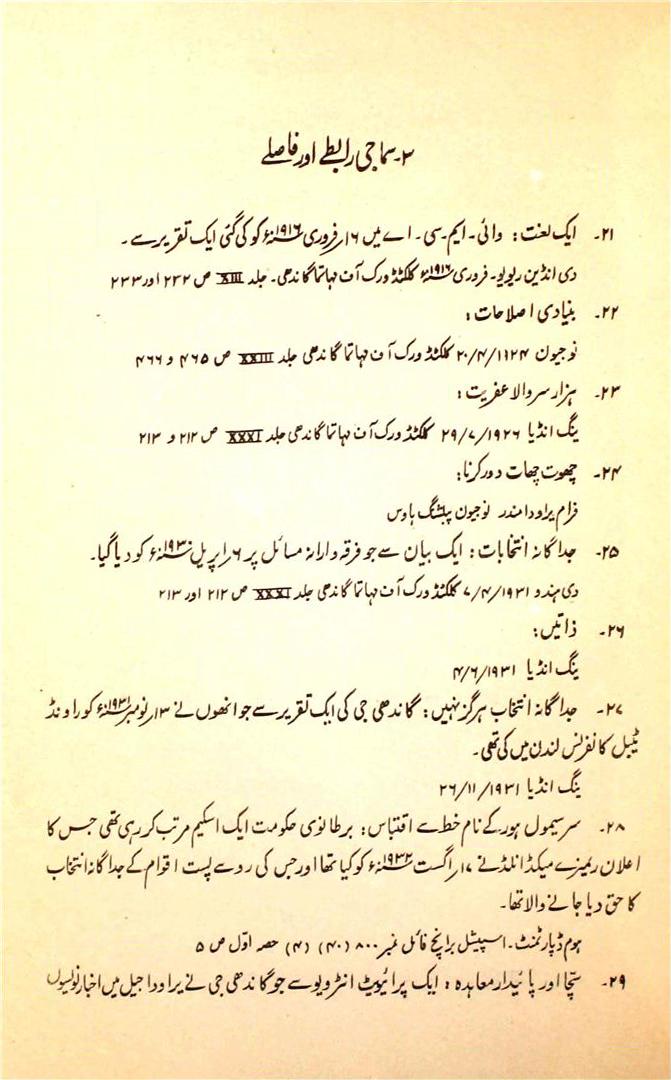 ۳۔ سماجی رابطے اور فاصلے
۲۱۔ ایک لعنت: وائی۔ ایم۔ سی۔ اے میں ۱۶؍فروری ۱۹۱۶ء کو کی گئی ایک تقریر سے۔
دی انڈین ریویو۔ فروری ۱۹۱۶ء کلکٹڈ ورک آف مہاتما گاندھی۔ جلد XIII ص ۲۳۲ اور ۲۳۳
۲۲۔ بنیادی اصلاحات:
نوجیون ۲۰/۴/۱۹۲۴ کلکٹڈ ورک آف مہاتما گاندھی جلد XXIII ص ۴۶۵ و ۴۶۶
۲۳۔ ہزار سر والا عفریت:
ینگ انڈیا ۲۹/۷/۱۹۲۶ کلکٹڈ ورک آف مہاتما گاندھی جلد XXXI ص ۲۱۲ و ۲۱۳
۲۴۔ چھوت چھات دور کرنا:
فرام یراودا مندر نوجیون پبلشنگ ہاوس
۲۵۔ جداگانہ انتخابات: ایک بیان سے جو فرقہ وارانہ مسائل پر ۶؍اپریل ۱۹۳۰ء کو دیا گیا۔
دی ہندو ۷/۴/۱۹۳۱ کلکٹڈ ورک آف مہاتما گاندھی جلد XXXI ص ۲۱۲ اور ۲۱۳
۲۶۔ ذاتیں:
ینگ انڈیا ۴/۶/۱۹۳۱
۲۷۔ جداگانہ انتخاب ہرگز نہیں: گاندھی جی کی ایک تقریر سے جو انھوں نے ۱۳؍نومبر ۱۹۳۱ء کو راونڈ
ٹیبل کانفرنس لندن میں کی تھی۔
ینگ انڈیا ۲۶/۱۱/۱۹۳۱
۲۸۔ سر سیمول ہور کے نام خط سے اقتباس: برطانوی حکومت ایک اسکیم مرتب کر رہی تھی جس کا
اعلان ریمزے میکڈانلڈ نے ۱۷؍اگست ۱۹۳۲ء کو کیا تھا اور جس کی رو سے پست اقوام کے جداگانہ انتخاب
کا حق دیا جانے والا تھا۔
ہوم ڈپارٹمنٹ۔ اسپیشل برانچ فائل نمبر ۸۰۰ (۴۰) (۴) حصہ اوّل ص ۵
۲۹۔ سچّا اور پائیدار معاہدہ: ایک پرائیویٹ انٹرویو سے جو گاندھی جی نے یراودا جیل میں اخبار نویسوں